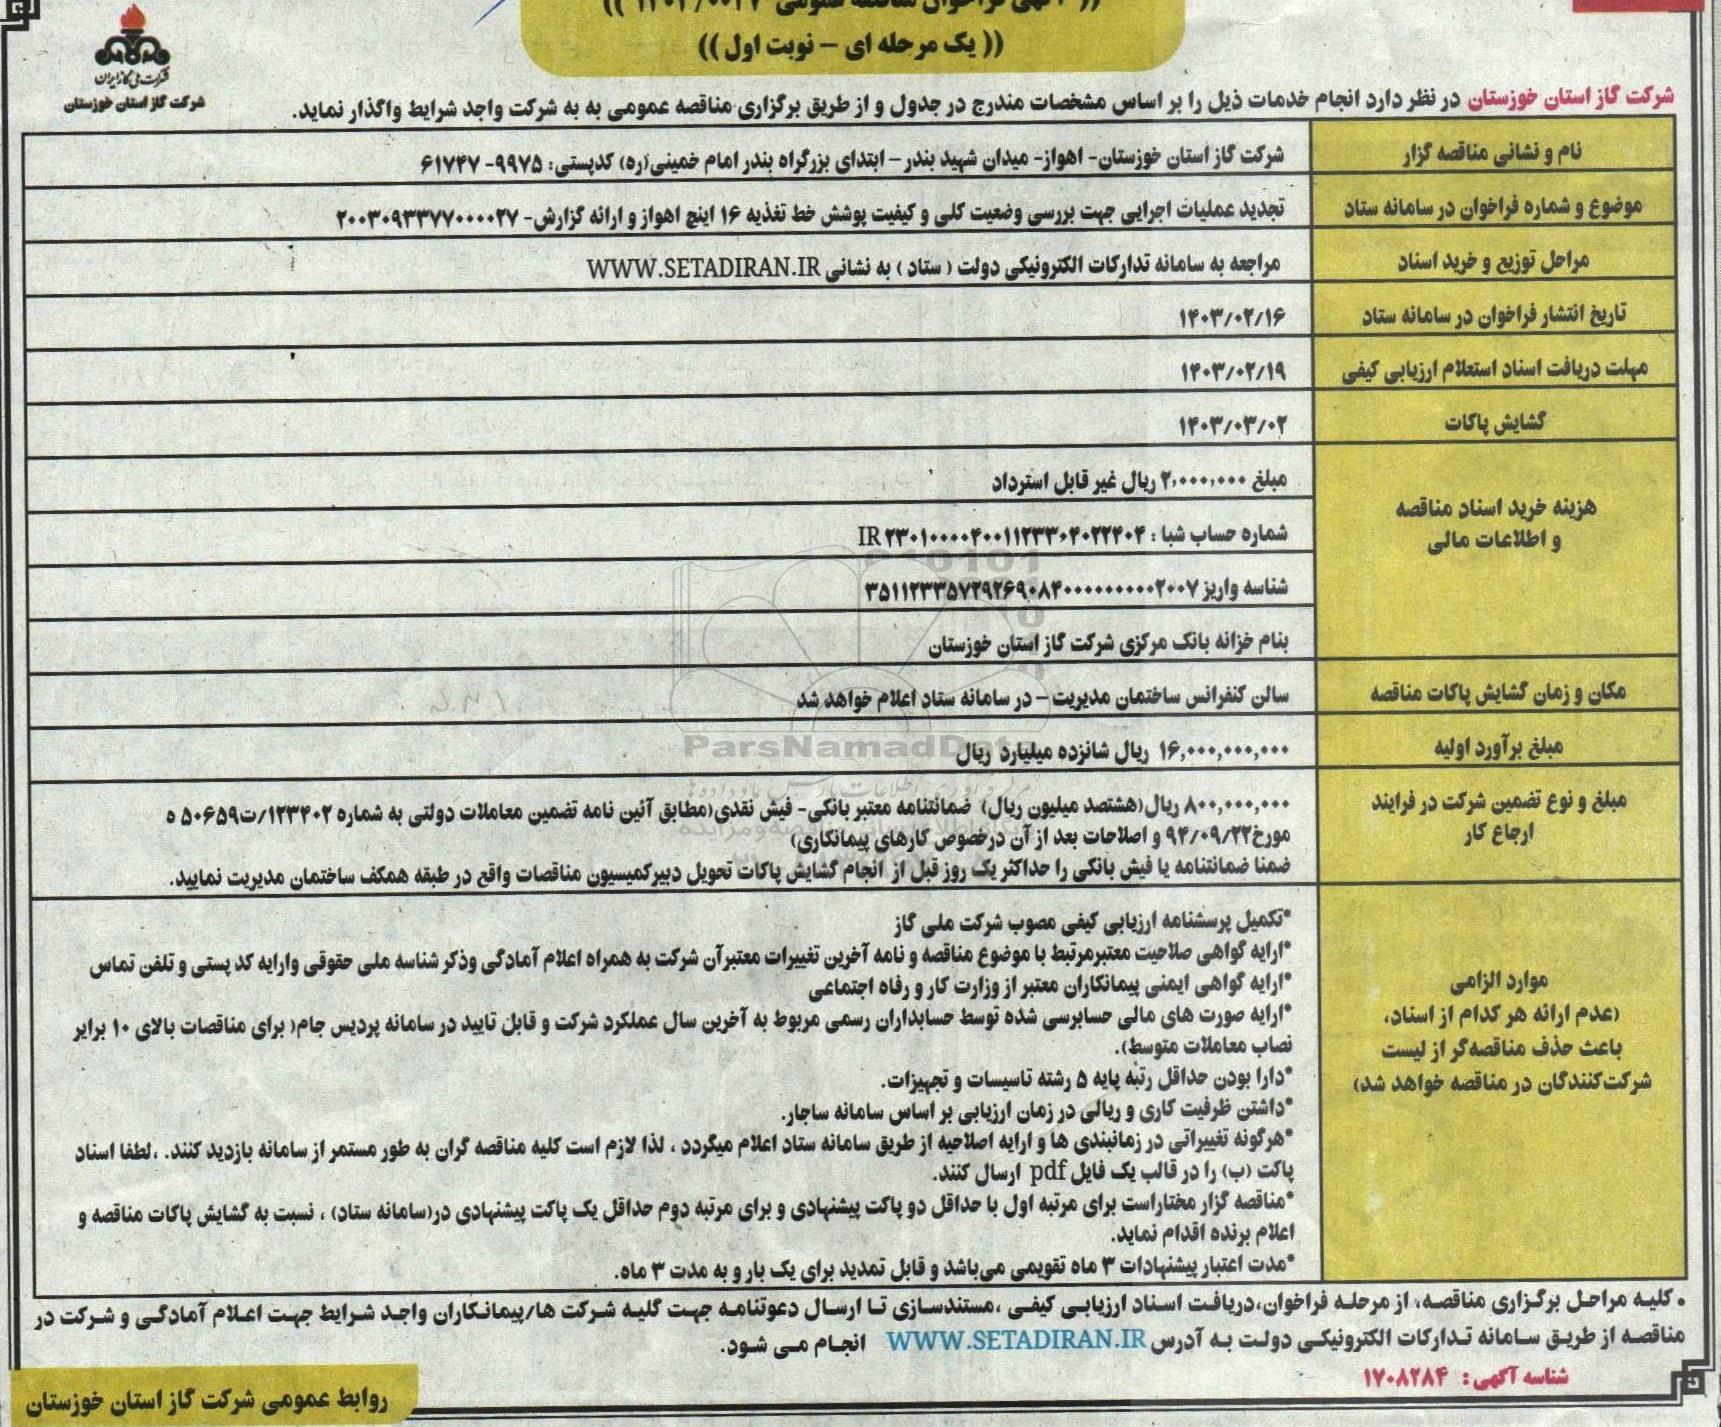 (( یک مرحله ای – نوبت اول ))
شرکت ملی گاز ایران
شرکت گاز استان خوزستان
شرکت گاز استان خوزستان در نظر دارد انجام خدمات ذیل را بر اساس مشخصات مندرج در جدول و از طریق برگزاری مناقصه عمومی به به شرکت واجد شرایط واگذار نماید.
نام و نشانی مناقصه گزار
شرکت گاز استان خوزستان- اهواز- میدان شهید بندر – ابتدای بزرگراه بندر امام خمینی(ره) کدپستی: ۹۹۷۵- ۶۱۷۴۷
موضوع و شماره فراخوان در سامانه ستاد
تجدید عملیات اجرایی جهت بررسی وضعیت کلی و کیفیت پوشش خط تغذیه ۱۶ اینچ اهواز و ارائه گزارش- ۲۰۰۳۰۹۳۳۷۷۰۰۰۰۲۷
مراحل توزیع و خرید اسناد
مراجعه به سامانه تدارکات الکترونیکی دولت ( ستاد ) به نشانی WWW.SETADIRAN.IR
تاریخ انتشار فراخوان در سامانه ستاد
۱۴۰۳/۰۲/۱۶
مهلت دریافت اسناد استعلام ارزیابی کیفی
۱۴۰۳/۰۲/۱۹
گشایش پاکات
۱۴۰۳/۰۳/۰۲
هزینه خرید اسناد مناقصه
و اطلاعات مالی
مبلغ ۲,۰۰۰,۰۰۰ ریال غیر قابل استرداد
شماره حساب شبا : IR ۲۳۰۱۰۰۰۰۴۰۰۱۱۲۳۳۰۴۰۲۲۴۰۴
شناسه واریز ۳۵۱۱۲۳۳۵۷۲۹۲۶۹۰۸۴۰۰۰۰۰۰۰۰۰۰۲۰۰۷
بنام خزانه بانک مرکزی شرکت گاز استان خوزستان
مکان و زمان گشایش پاکات مناقصه
سالن کنفرانس ساختمان مدیریت – در سامانه ستاد اعلام خواهد شد
ParsNamadData
مبلغ برآورد اولیه
۱۶,۰۰۰,۰۰۰,۰۰۰ ریال شانزده میلیارد ریال
مبلغ و نوع تضمین شرکت در فرایند
ارجاع کار
۸۰۰,۰۰۰,۰۰۰ ریال(هشتصد میلیون ریال) ضمانتنامه معتبر بانکی- فیش نقدی(مطابق آئین نامه تضمین معاملات دولتی به شماره ۱۲۳۴۰۲/ت۵۰۶۵۹ ه
مورخ۹۴/۰۹/۲۲ و اصلاحات بعد از آن درخصوص کارهای پیمانکاری)
ضمنا ضمانتنامه یا فیش بانکی را حداکثر یک روز قبل از انجام گشایش پاکات تحویل دبیرکمیسیون مناقصات واقع در طبقه همکف ساختمان مدیریت نمایید.
موارد الزامی
(عدم ارائه هر کدام از اسناد،
باعث حذف مناقصه‌گر از لیست
شرکت‌کنندگان در مناقصه خواهد شد)
*تکمیل پرسشنامه ارزیابی کیفی مصوب شرکت ملی گاز
*ارایه گواهی صلاحیت معتبرمرتبط با موضوع مناقصه و نامه آخرین تغییرات معتبرآن شرکت به همراه اعلام آمادگی وذکر شناسه ملی حقوقی وارایه کد پستی و تلفن تماس
*ارایه گواهی ایمنی پیمانکاران معتبر از وزارت کار و رفاه اجتماعی
*ارایه صورت های مالی حسابرسی شده توسط حسابداران رسمی مربوط به آخرین سال عملکرد شرکت و قابل تایید در سامانه پردیس جام( برای مناقصات بالای ۱۰ برابر
نصاب معاملات متوسط).
*دارا بودن حداقل رتبه پایه ۵ رشته تاسیسات و تجهیزات.
*داشتن ظرفیت کاری و ریالی در زمان ارزیابی بر اساس سامانه ساجار.
*هرگونه تغییراتی در زمانبندی ها و ارایه اصلاحیه از طریق سامانه ستاد اعلام میگردد ، لذا لازم است کلیه مناقصه گران به طور مستمر از سامانه بازدید کنند. ،لطفا اسناد
پاکت (ب) را در قالب یک فایل pdf ارسال کنند.
*مناقصه گزار مختاراست برای مرتبه اول با حداقل دو پاکت پیشنهادی و برای مرتبه دوم حداقل یک پاکت پیشنهادی در(سامانه ستاد) ، نسبت به گشایش پاکات مناقصه و
اعلام برنده اقدام نماید.
*مدت اعتبار پیشنهادات ۳ ماه تقویمی می‌باشد و قابل تمدید برای یک بار و به مدت ۳ ماه.
• کلیه مراحل برگزاری مناقصه، از مرحله فراخوان،دریافت اسناد ارزیابی کیفی ،مستندسازی تا ارسال دعوتنامه جهت گلیه شرکت ها/پیمانکاران واجد شرایط جهت اعلام آمادگی و شرکت در
مناقصه از طریق سامانه تدارکات الکترونیکی دولت به آدرس WWW.SETADIRAN.IR انجام می شود.
شناسه آگهی : ۱۷۰۸۲۸۴
روابط عمومی شرکت گاز استان خوزستان